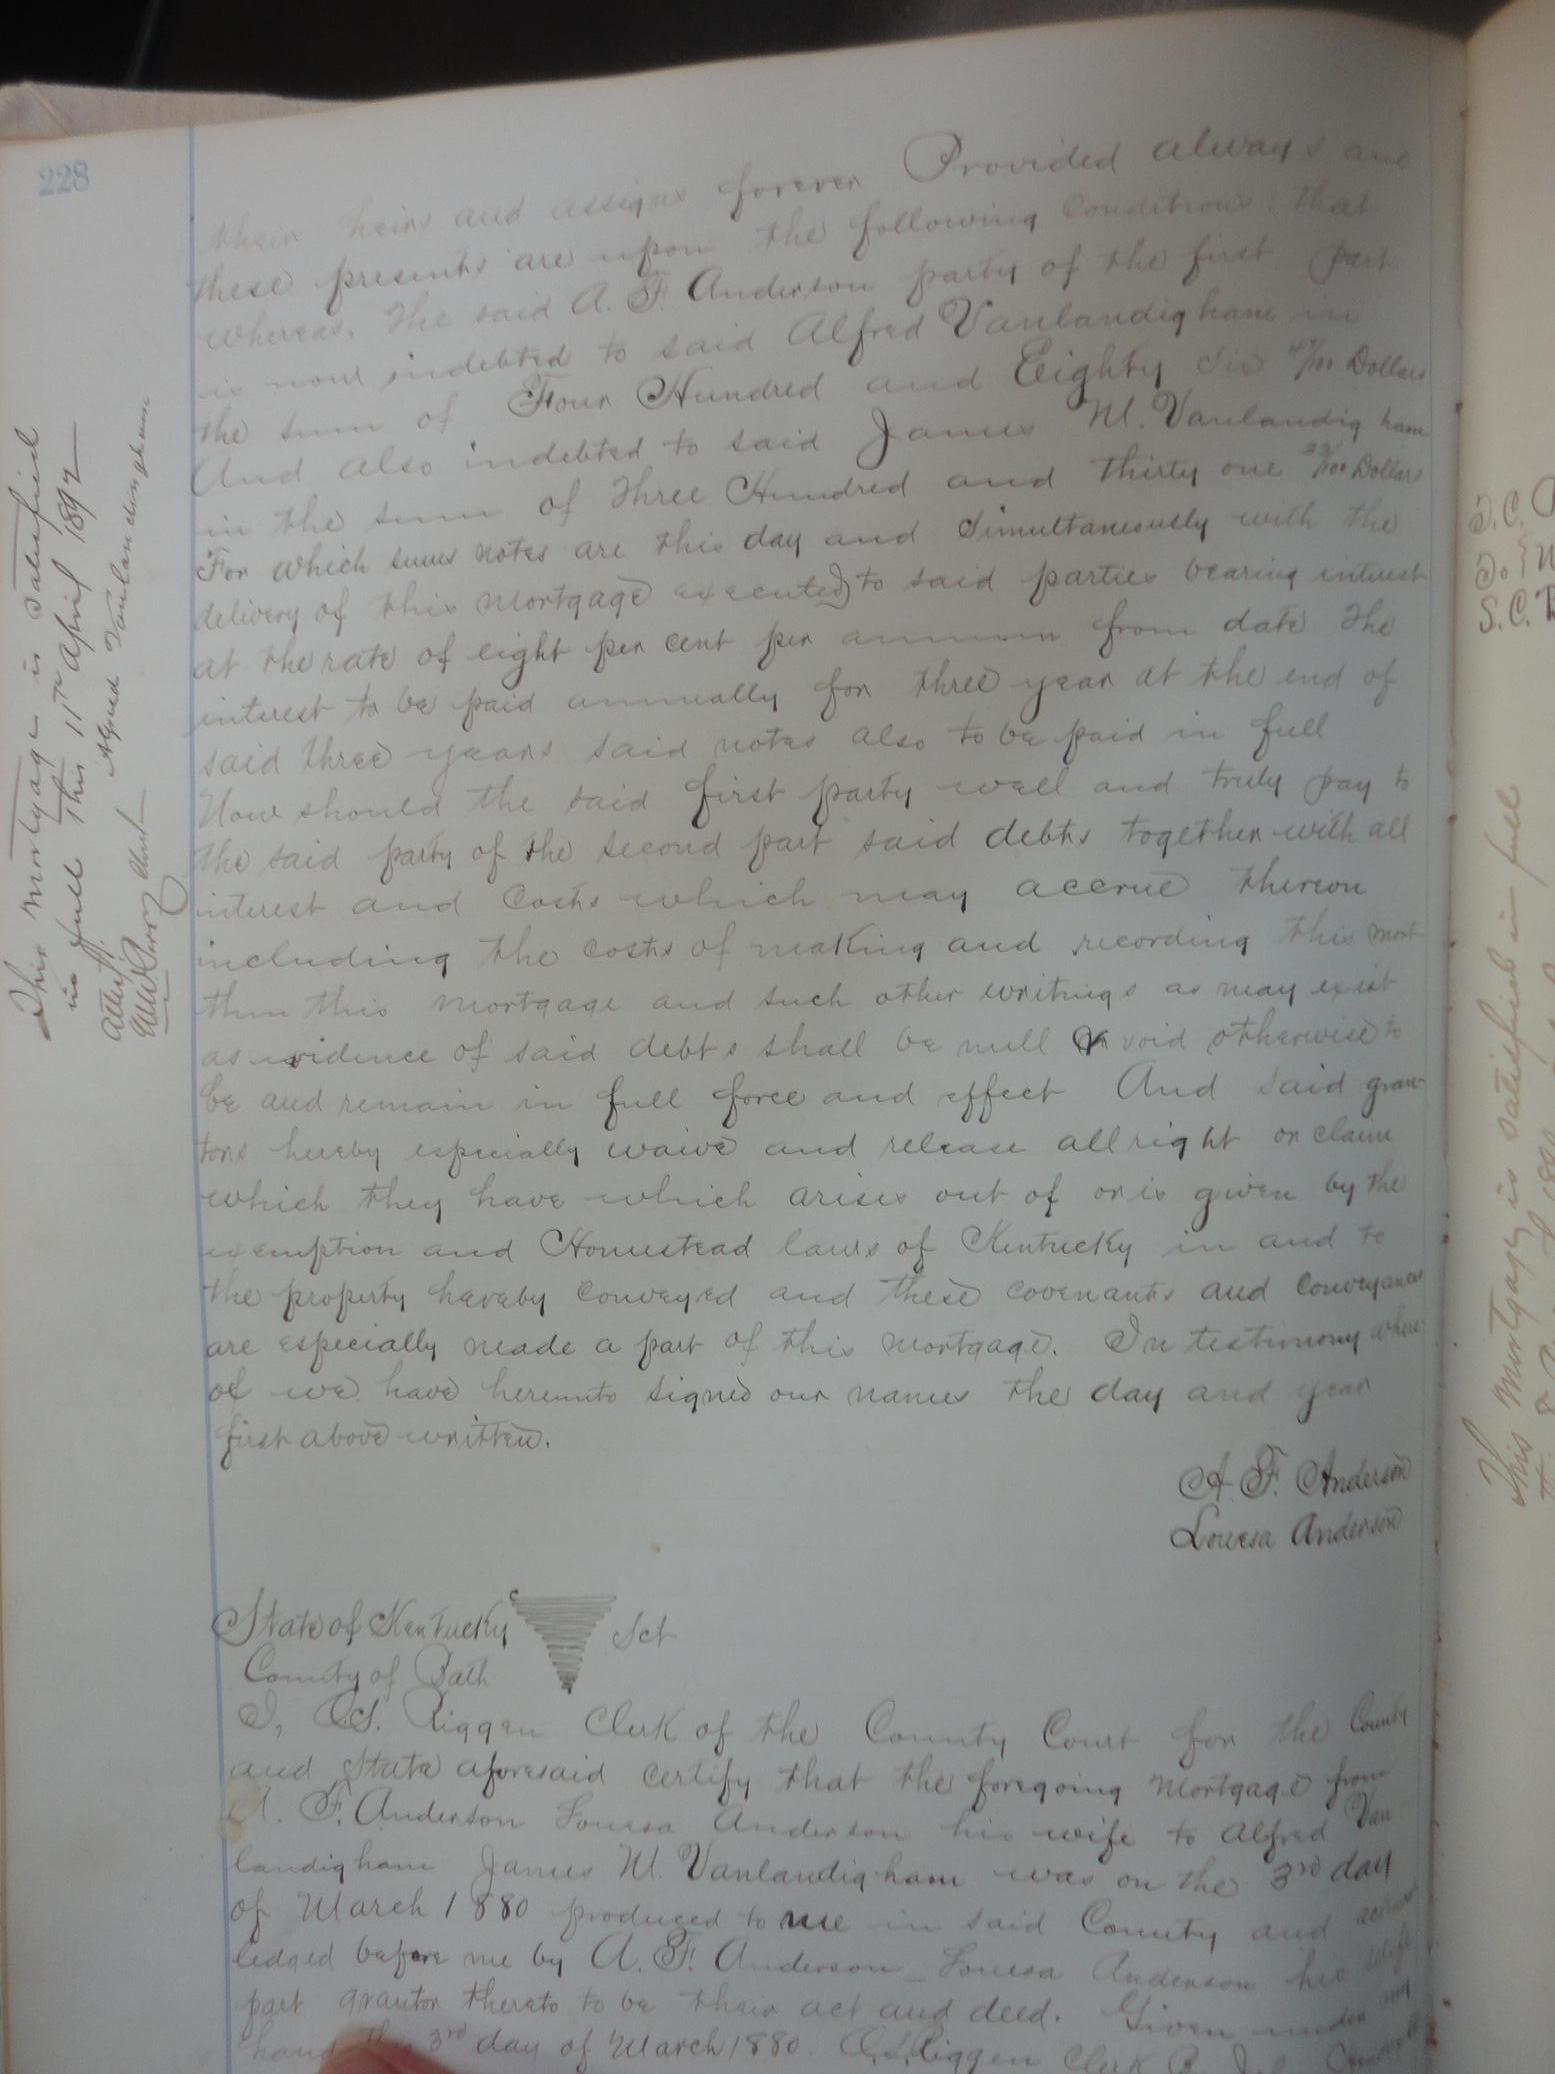 228
their heirs and assigns forever Provided always and
these presents are upon the following Conditions: that
whereas, the said A. F. Anderson party of the first part
is now indebted to said Alfred Vanlandigham in
the sum of Four Hundred and Eighty Six /100 Dollars
And also indebted to said James W. Vanlandigham
in the sum of Three Hundred and thirty one 33/100 Dollars
For which sums notes are this day and simultaneously with the
delivery of this mortgage executed to said parties bearing interest
at the rate of eight per cent per annum from date the
interest to be paid annually for three year at the end of
said three years said notes also to be paid in full
Now should the said first party well and truly pay to
the said party of the second part said debts together with all
interest and Costs which may accrue thereon
including the costs of making and recording this mort
then this mortgage and such other writings as may exist
as evidence of said debts shall be null & void otherwise to
be and remain in full force and effect And said gran-
tors hereby especially waive and release all right or claim
which they have which arises out of or is given by the
exemption and Homestead laws of Kentucky in and to
the property hereby conveyed and these covenants and conveyances
are especially made a part of this mortgage. In testimony where
of we have hereunto signed our names the day and year
first above written.
A. F. Anderson
Louesa Anderson
State of Kentucky Sct
County of Bath
I, Riggen Clerk of the County Court for the County
and State aforesaid certify that the foregoing mortgage from
A. F. Anderson Louesa Anderson his wife to Alfred Van
landigham James W. Vanlandigham was on the 3rd day
of March 1880 produced to me in said County and
ledged before me by A. F. Anderson Louesa Anderson his wife
part grantor thereto to be their act and deed. Given under my
hand this 3rd day of March 1880. Riggen Clerk
This Mortgage is satisfied
in full This 11th April 1892
Attest: Alfred Vanlandingham
Clerk
This Mortgage is satisfied in full